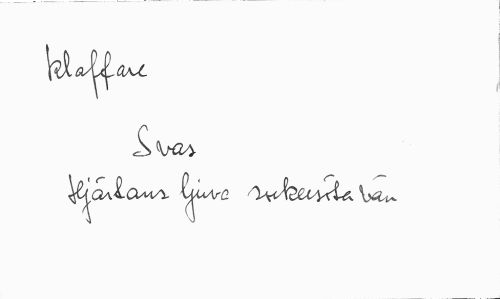 klaffare
Svar
Hjärtans ljuva sockersöta vän